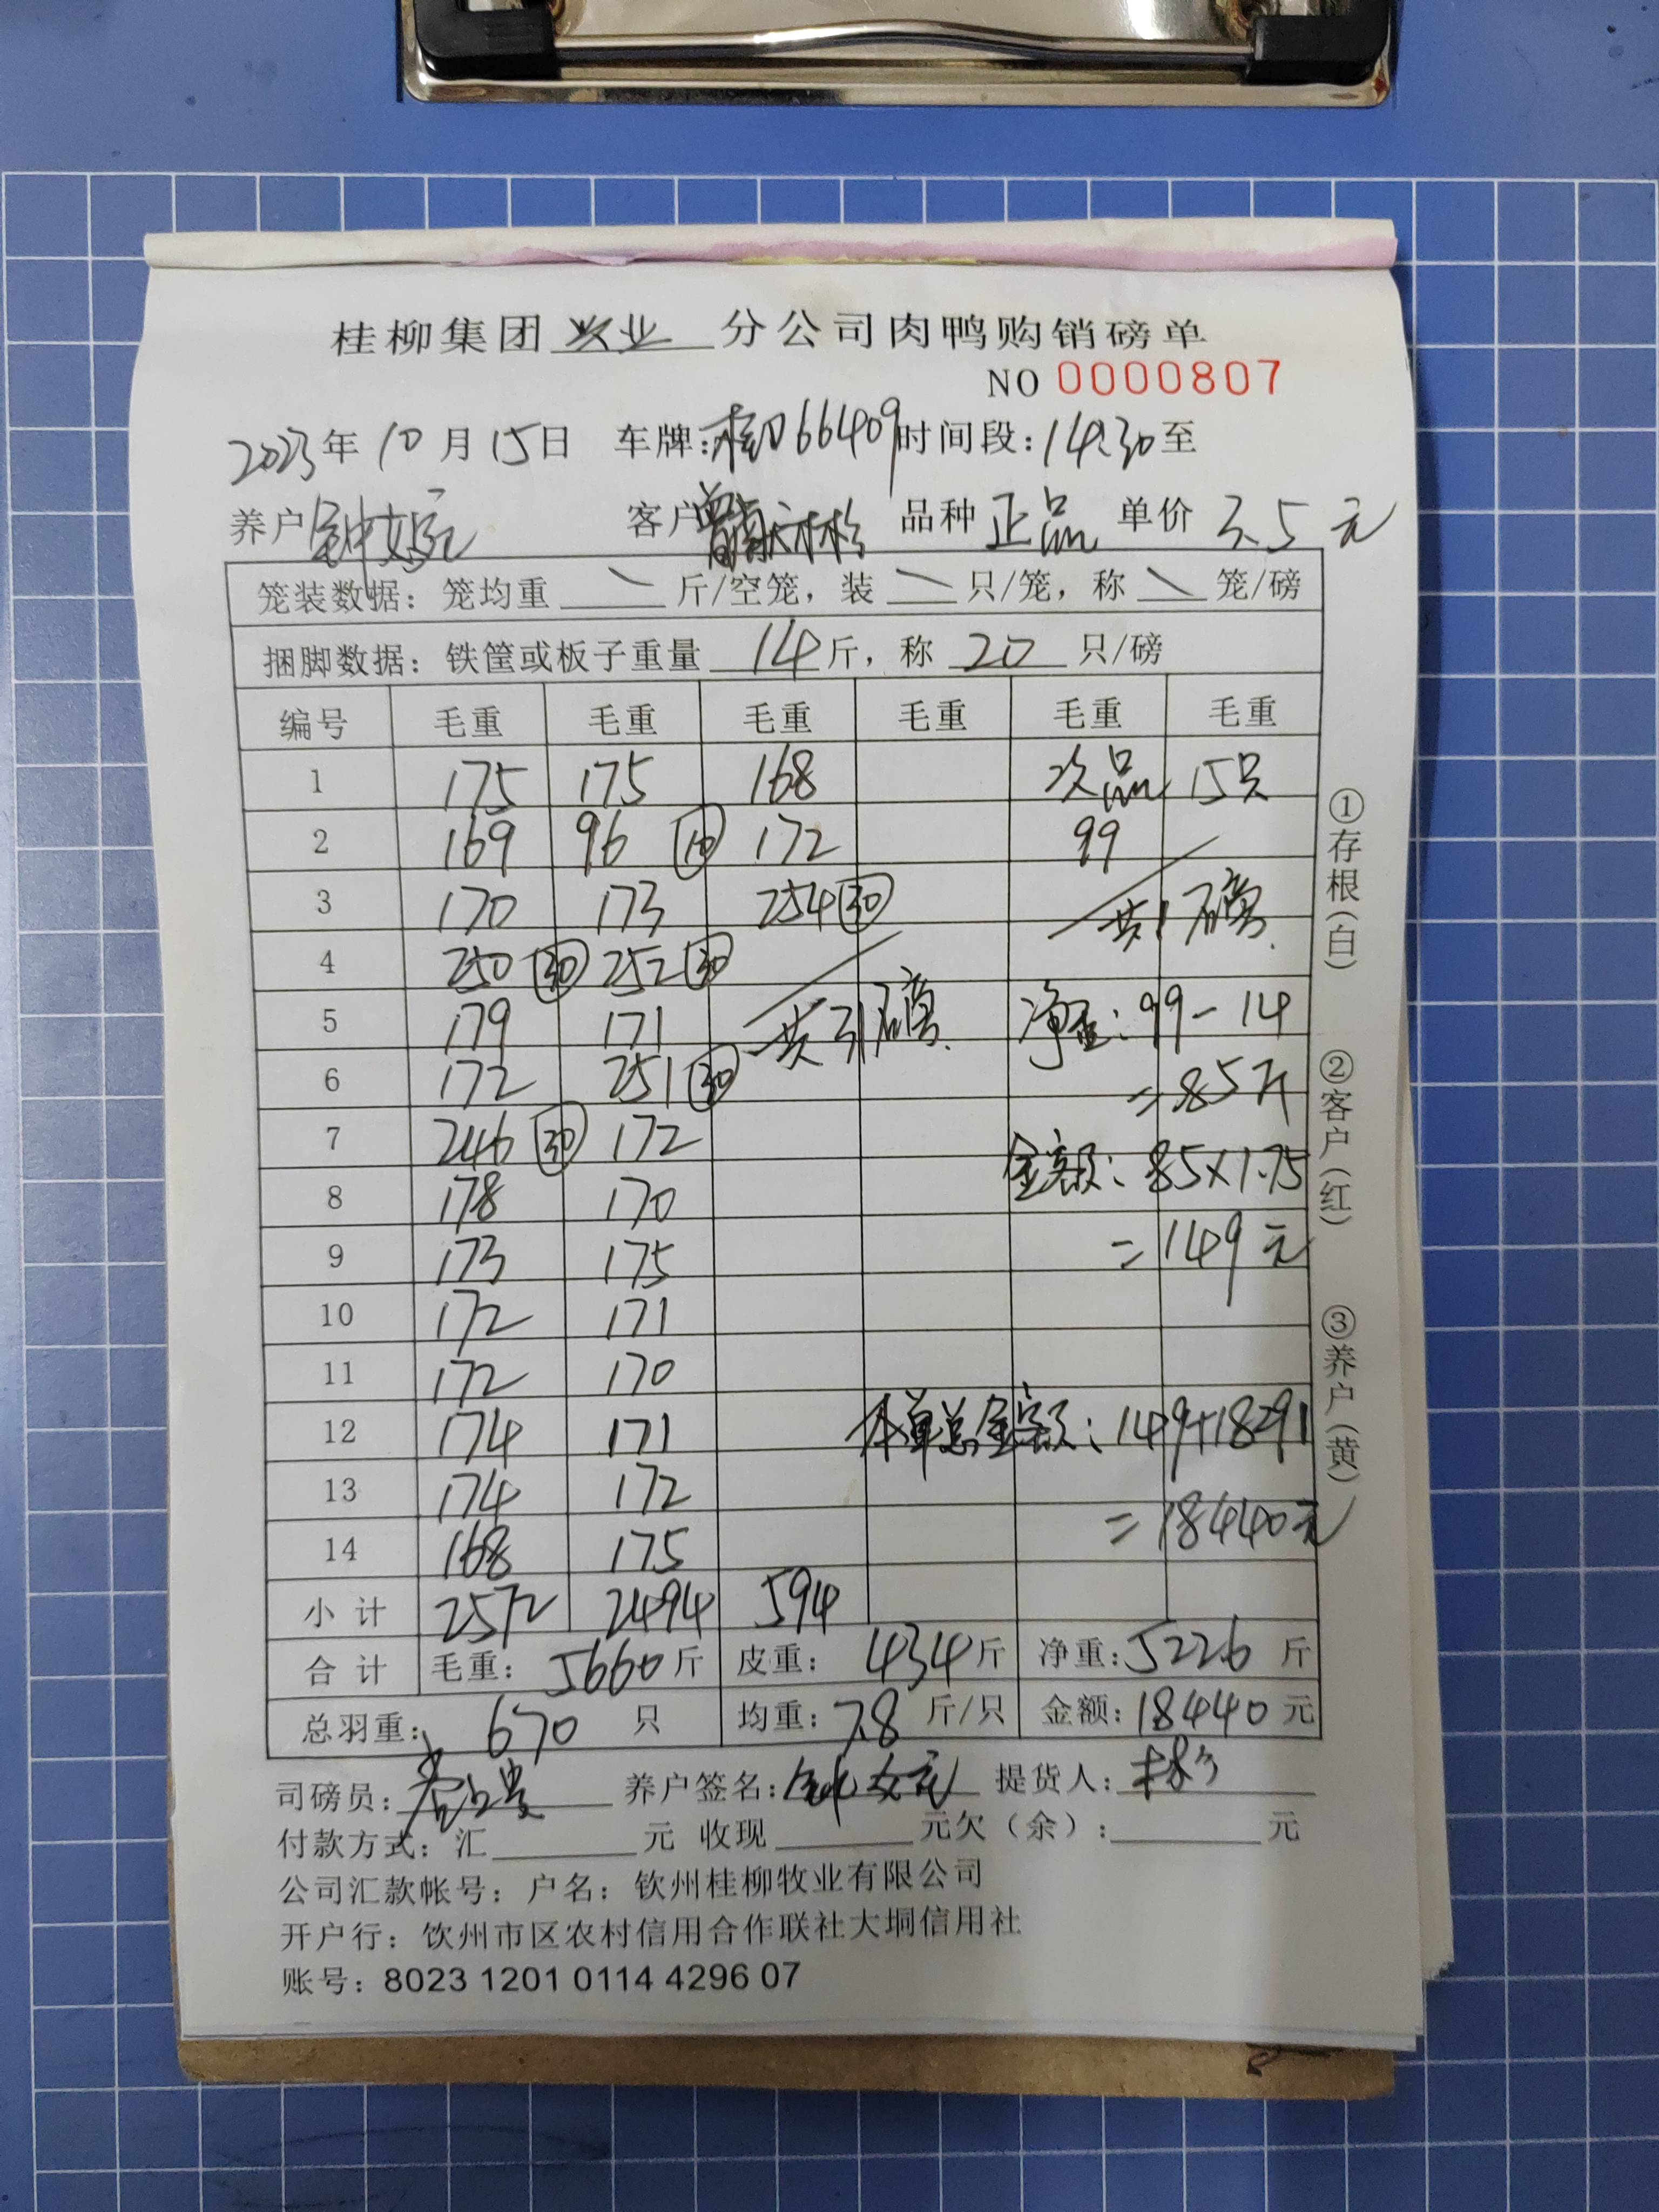 桂柳集团兴业分公司肉鸭购销磅单
NO 0000807
2023年10月15日 车牌:桂D66409 时间段:14:30至
养户 客户 品种 正品 单价 3.5元
笼装数据:笼均重 \ 斤/空笼,装 \ 只/笼,称 \ 笼/磅
捆脚数据:铁筐或板子重量 14 斤,称 20 只/磅
编号 毛重 毛重 毛重 毛重 毛重 毛重
1 175 175 168 次品 15只
2 169 96 ⑩ 172 99
3 170 173 254 ㉚ 共1磅.
4 250 ㉚ 252 ㉚
5 179 171 共31磅. 净重:99-14
6 172 251 ㉚ =85斤
7 246 ㉚ 172 金额:85×1.75
8 178 170
9 173 175 =149元
10 172 171
11 172 170
12 174 171 本单总金额:149+18291
13 174 172 =18440元
14 168 175
小计 2572 2494 594
合计 毛重:5660斤 皮重:434斤 净重:5226斤
总羽重:670只 均重:7.8斤/只 金额:18440元
司磅员: 养户签名: 提货人:
付款方式:汇 元 收现 元欠(余): 元
公司汇款帐号:户名:钦州桂柳牧业有限公司
开户行:饮州市区农村信用合作联社大垌信用社
账号:8023 1201 0114 4296 07
①存根(白) ②客户(红) ③养户(黄)